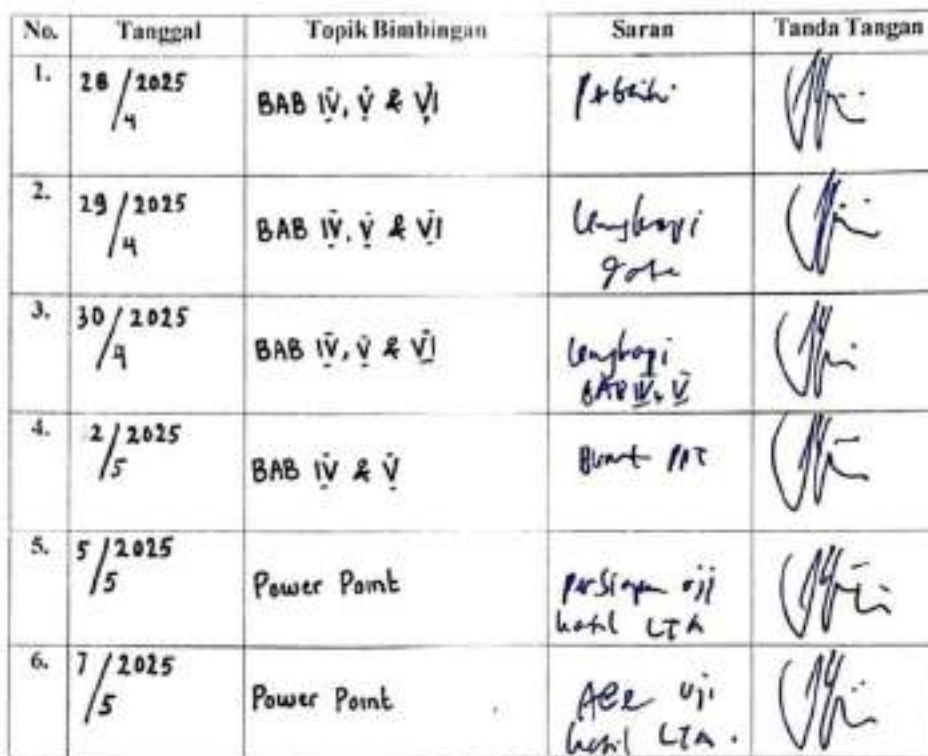 No. Tanggal Topik Bimbingan Saran Tanda Tangan
1. 28/4 2025 BAB IV, V & VI Perbaiki
2. 29/4 2025 BAB IV, V & VI Lengkapi
data
3. 30/4 2025 BAB IV, V & VI Lengkapi
BAB IV & V
4. 2/5 2025 BAB IV & V Buat PPT
5. 5/5 2025 Power Point Persiapan uji
hasil LTA
6. 7/5 2025 Power Point Acc uji
hasil LTA.